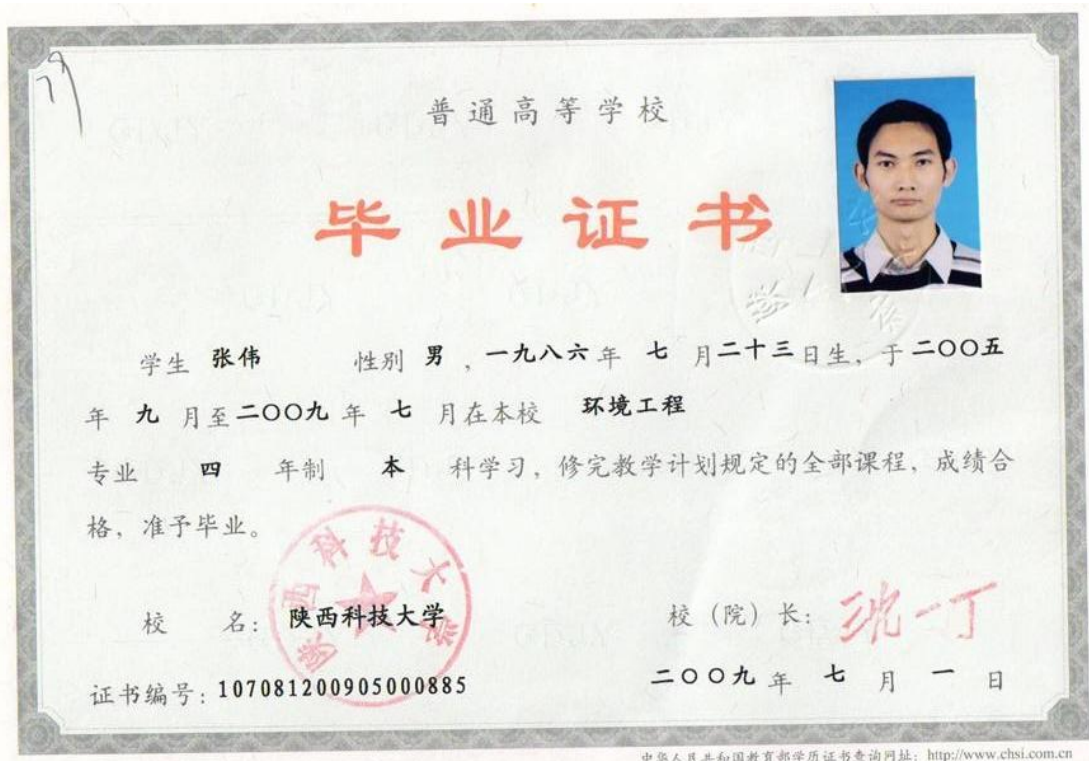 79
普通高等学校
毕业证书
学生 张伟 性别 男 ，一九八六 年 七 月 二十三 日生，于 二〇〇五
年 九 月至 二〇〇九 年 七 月在本校 环境工程
专业 四 年制 本 科学习，修完教学计划规定的全部课程，成绩合
格，准予毕业。
陕西科技大学
校 名：陕西科技大学
校（院）长：沈一丁
证书编号：107081200905000885
二〇〇九 年 七 月 一 日
中华人民共和国教育部学历证书查询网址：http://www.chsi.com.cn